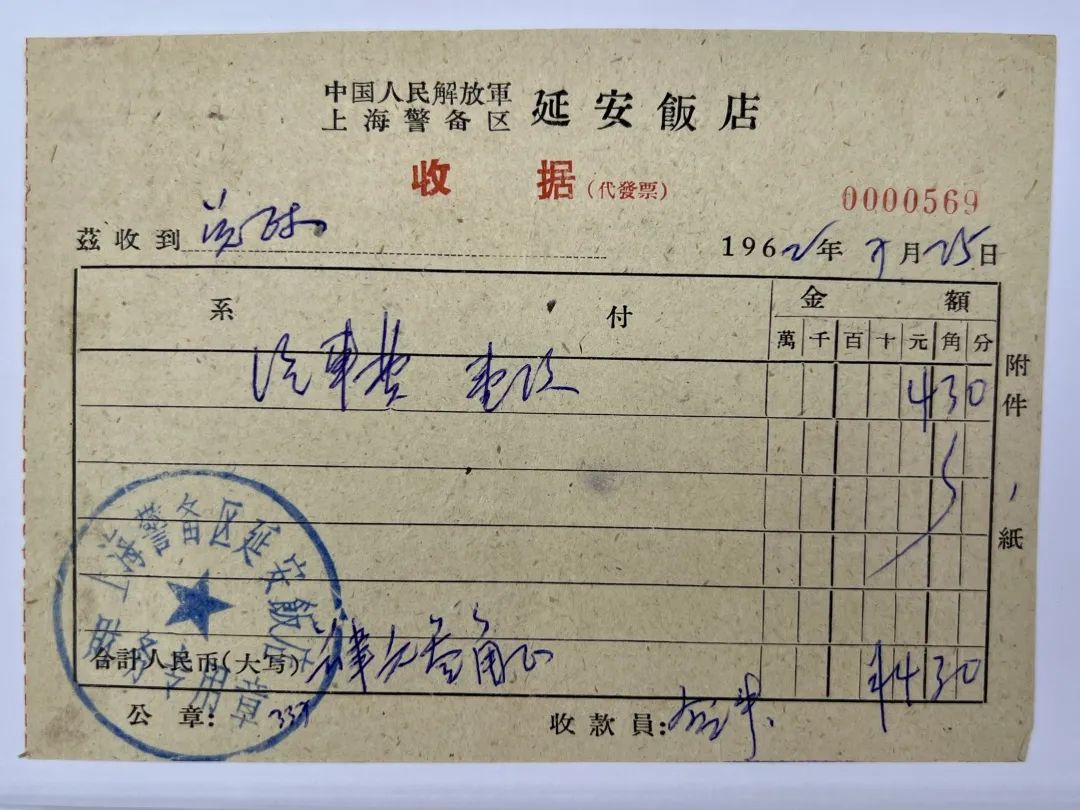 中国人民解放軍
上海警备区 延安飯店
收 据(代發票)
0000569
茲收到
1962年 月25日
系 付 金 額
萬 千 百 十 元 角 分
汽車费 430
附件 紙
上海警备区延安飯店
財务专用章
合計人民币(大写) 肆元叁角正 ¥430
公 章: 337 收款員: